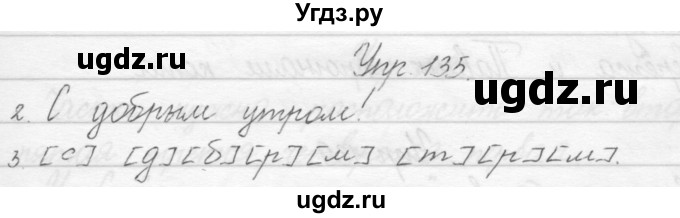 Угдз.ру
ugdz.ru
Упр. 135.
ugdz.ru
2. С добрым утром!
3. [с] [д][б][р][м] [т][р][м].
ugdz.ru
ugdz.ru